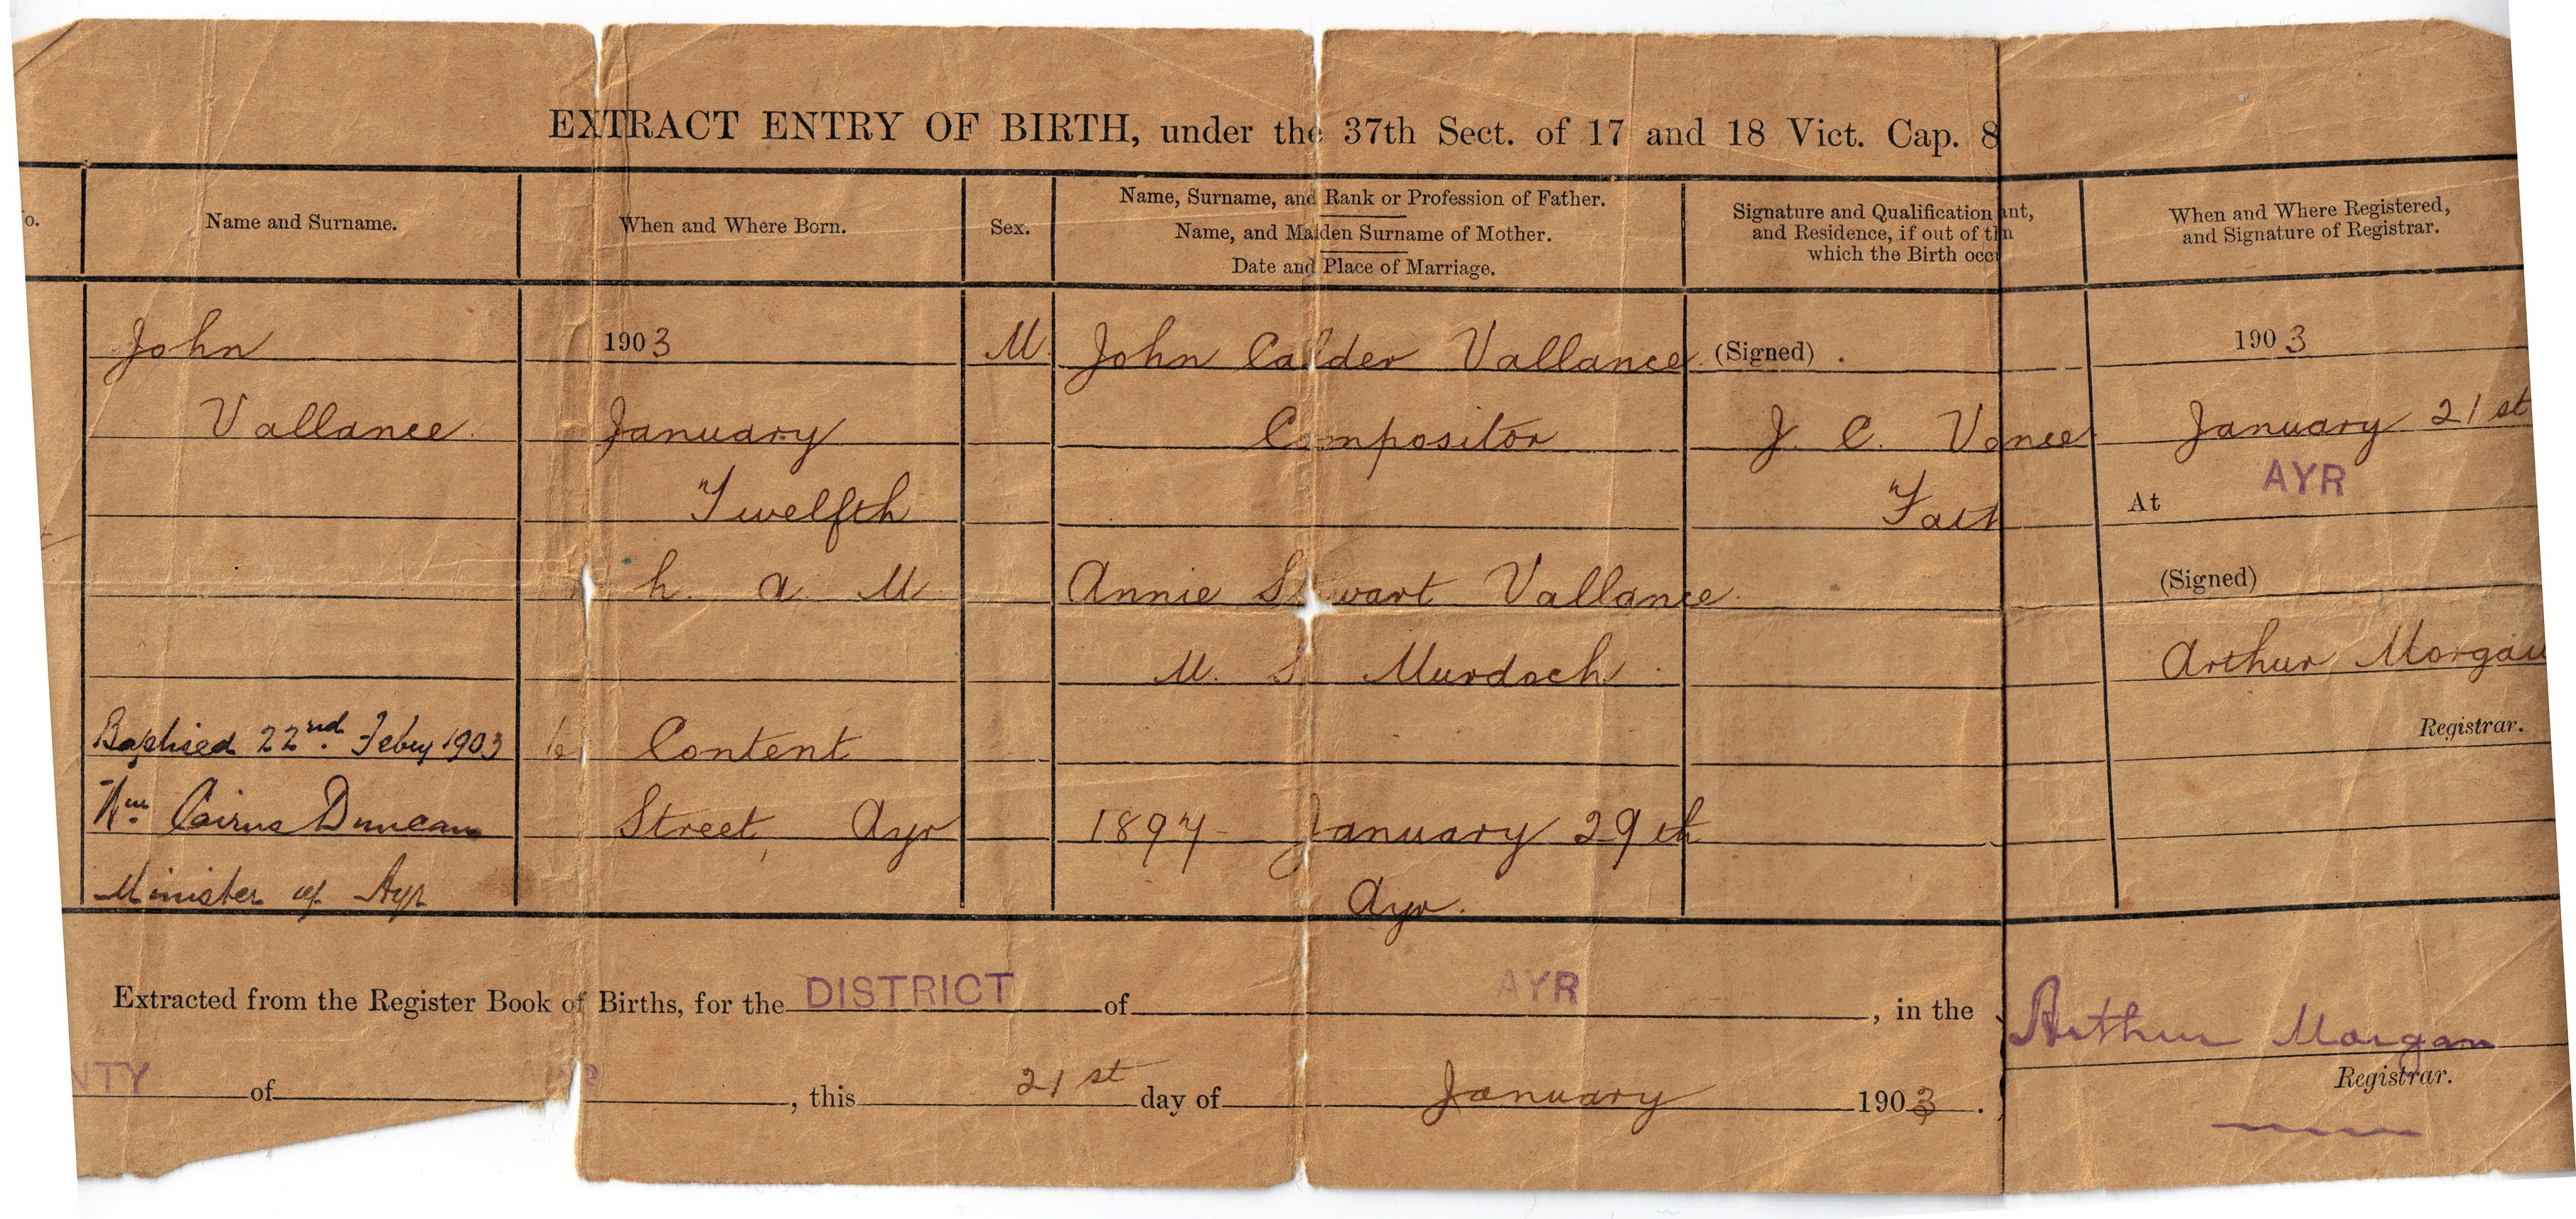 EXTRACT ENTRY OF BIRTH, under the 37th Sect. of 17 and 18 Vict. Cap. 8
o.
Name and Surname.
When and Where Born.
Sex.
Name, Surname, and Rank or Profession of Father.
Name, and Maiden Surname of Mother.
Date and Place of Marriage.
Signature and Qualification ant,
and Residence, if out of th n
which the Birth occ
When and Where Registered,
and Signature of Registrar.
John
Vallance
Baptised 22nd. Feby 1903
Wm Cairns Duncan
Minister of Ayr
1903
January
Twelfth
h. a. M
Content
Street, Ayr
M.
John Calder Vallance
Compositor
Annie Stewart Vallance
M. S. Murdoch
1897 January 29th
Ayr.
(Signed)
J. C. Va nce
Fath
1903
January 21st
At AYR
(Signed)
Arthur Morgan
Registrar.
Extracted from the Register Book of Births, for the DISTRICT of AYR, in the
NTY of AYR, this 21st day of January 1903.
Arthur Morgan
Registrar.